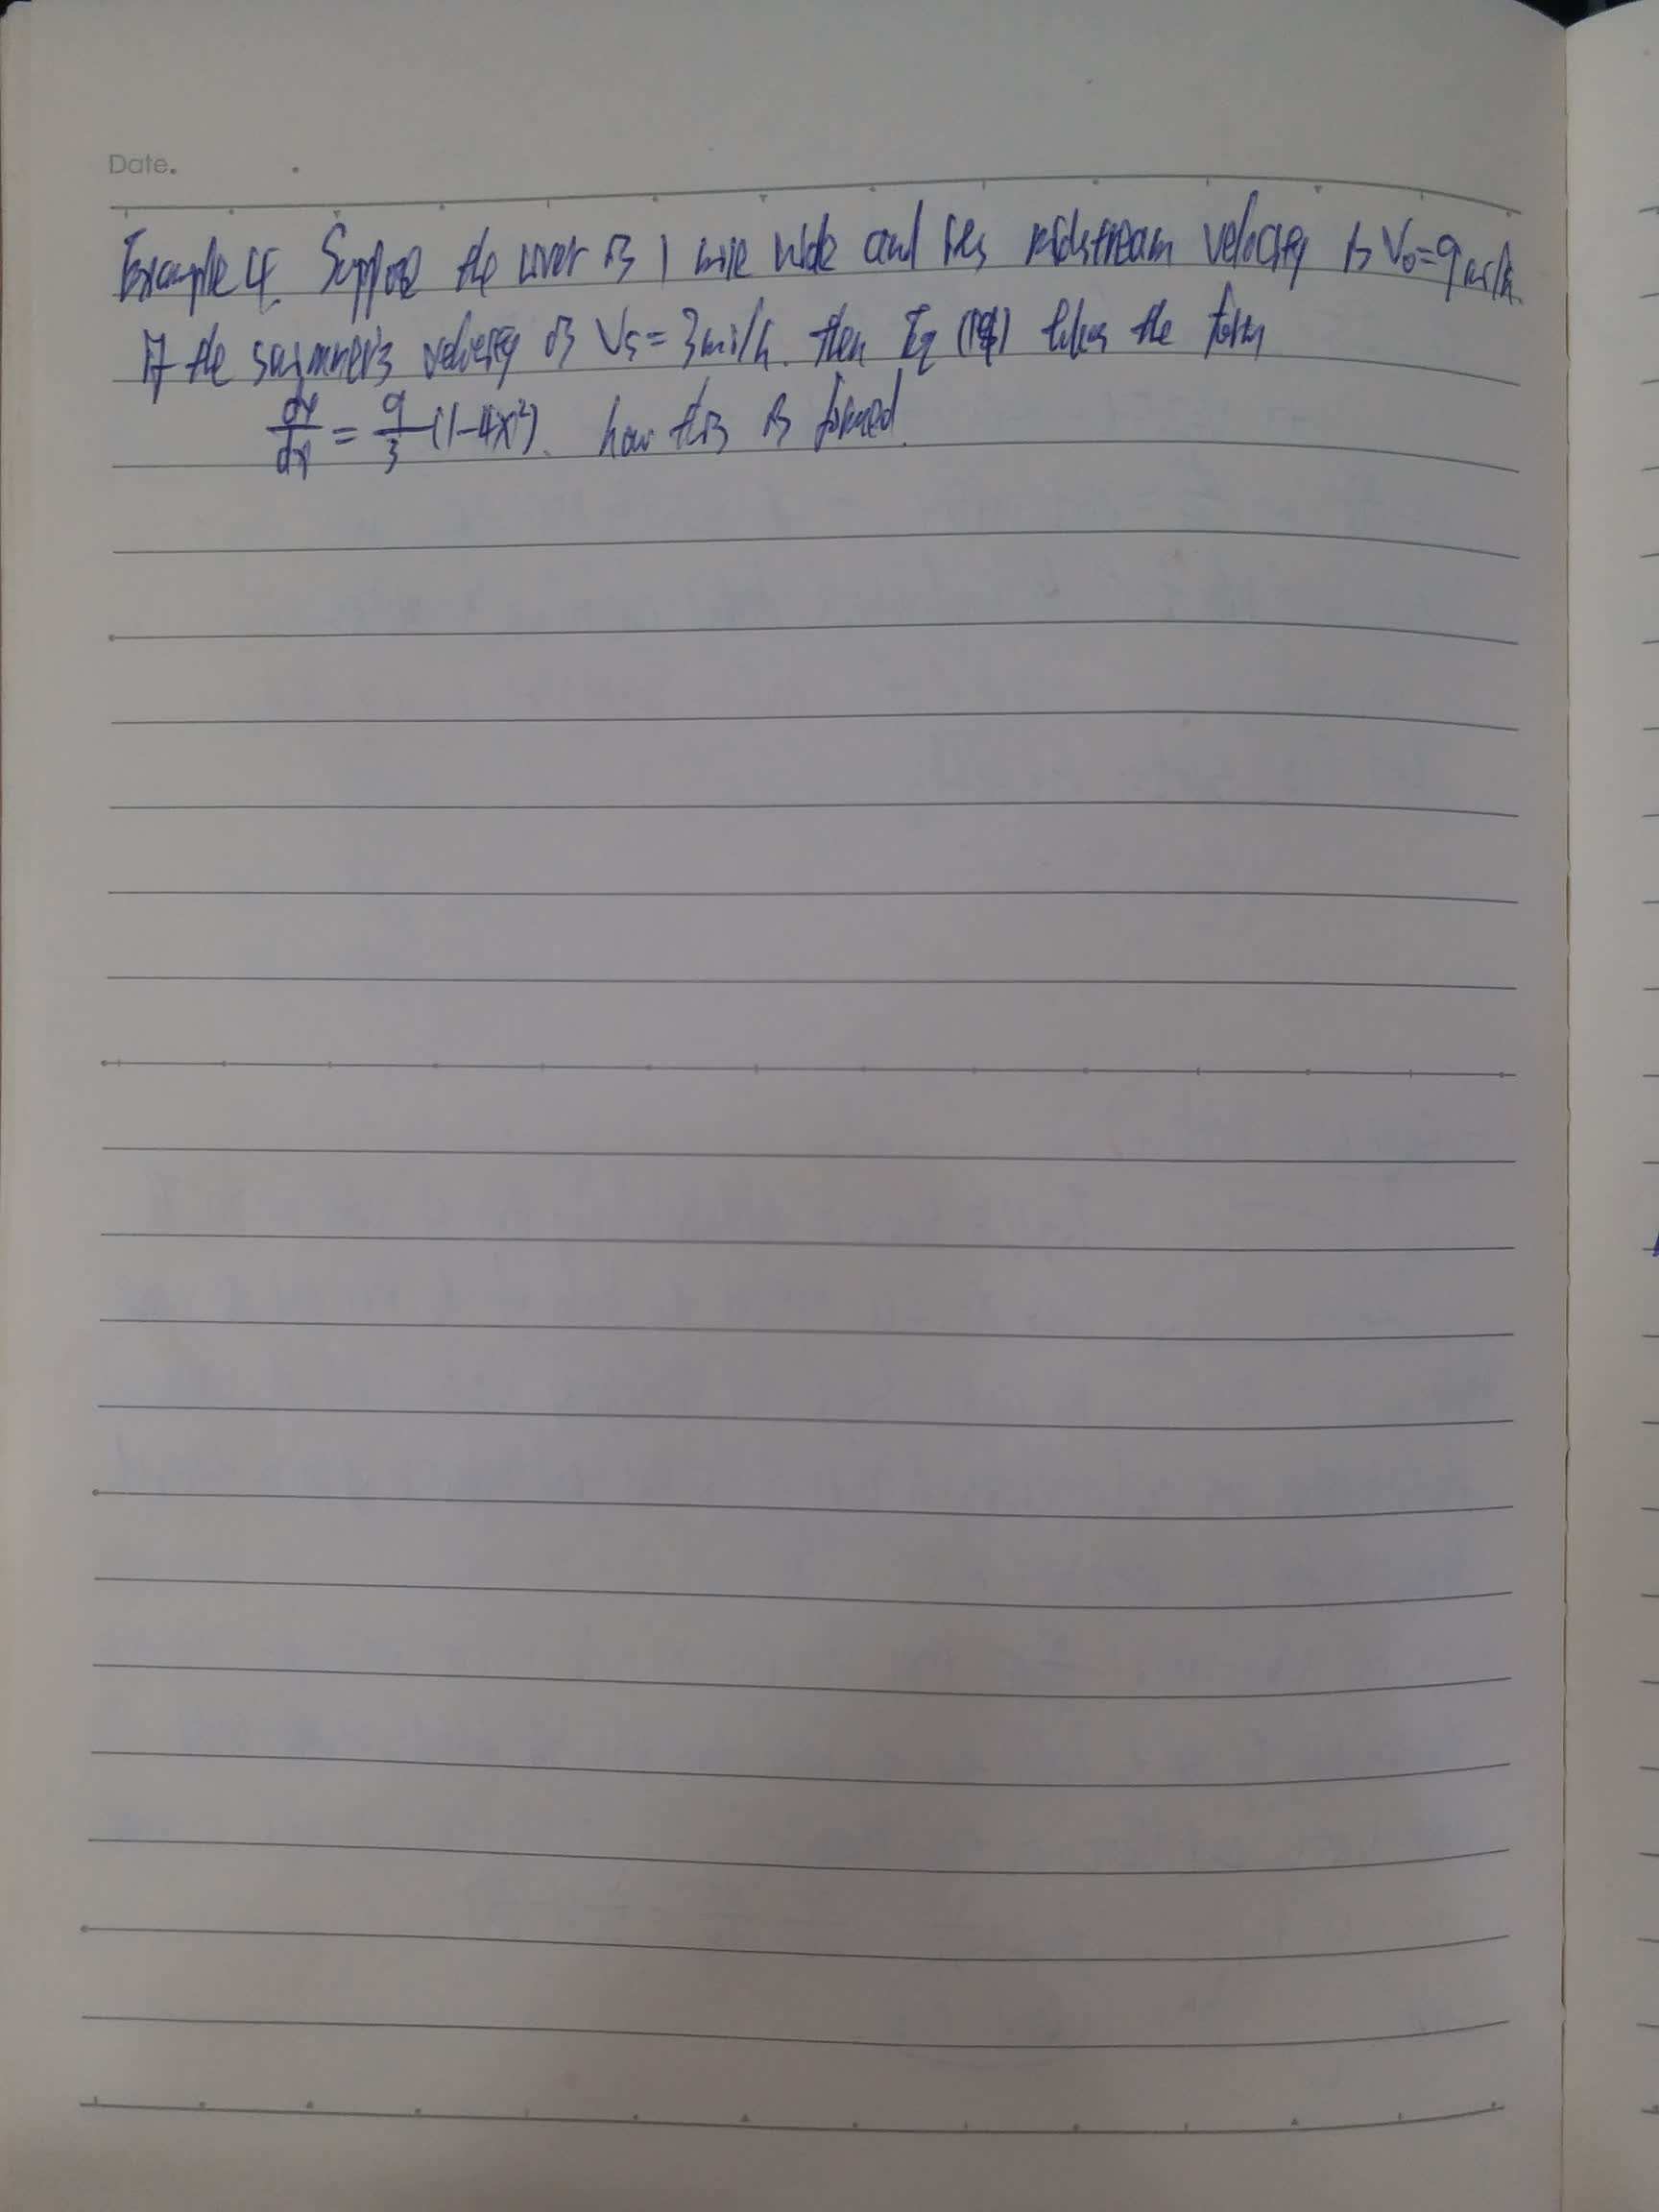 Date.
Example 4. Suppose the river is 1 mile wide and its midstream velocity is V₀=9mi/h.
If the swimmer's velocity is Vs=3mi/h. then Eq (19) takes the form
dy/dx = 9/3 (1-4x²). how this is formed.